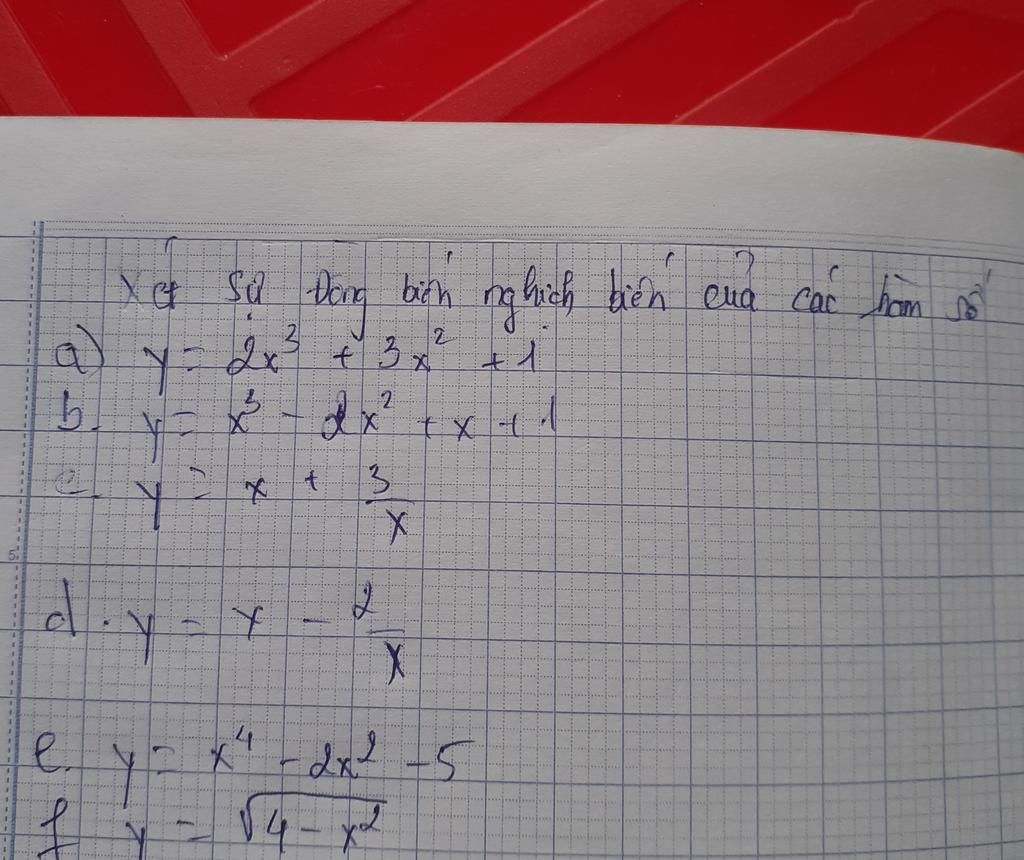 Xét sự Đồng biến nghịch biến của các hàm số
a) y = 2x³ + 3x² + 1
b. y = x³ - 2x² + x + 1
c. y = x + 3/x
5
d. y = x - 2/x
e. y = x⁴ - 2x² - 5
f y = √(4 - x²)